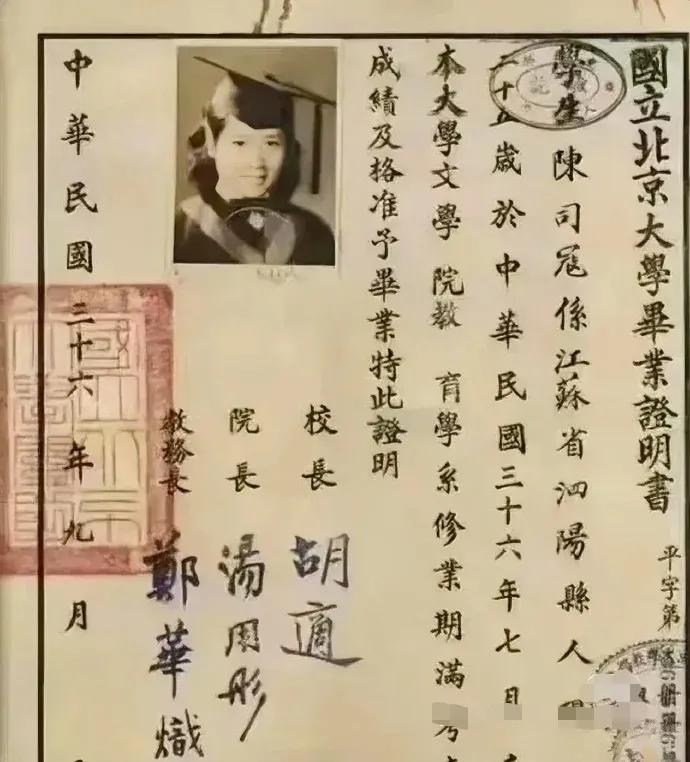 國立北京大學畢業證明書
平字第
學生陳司冦係江蘇省泗陽縣人現
二十五歲於中華民國三十六年七月在
本大學文學院教育學系修業期滿考
成績及格准予畢業特此證明
校長胡適
院長湯用彤
教務長鄭華熾
中華民國三十六年九月